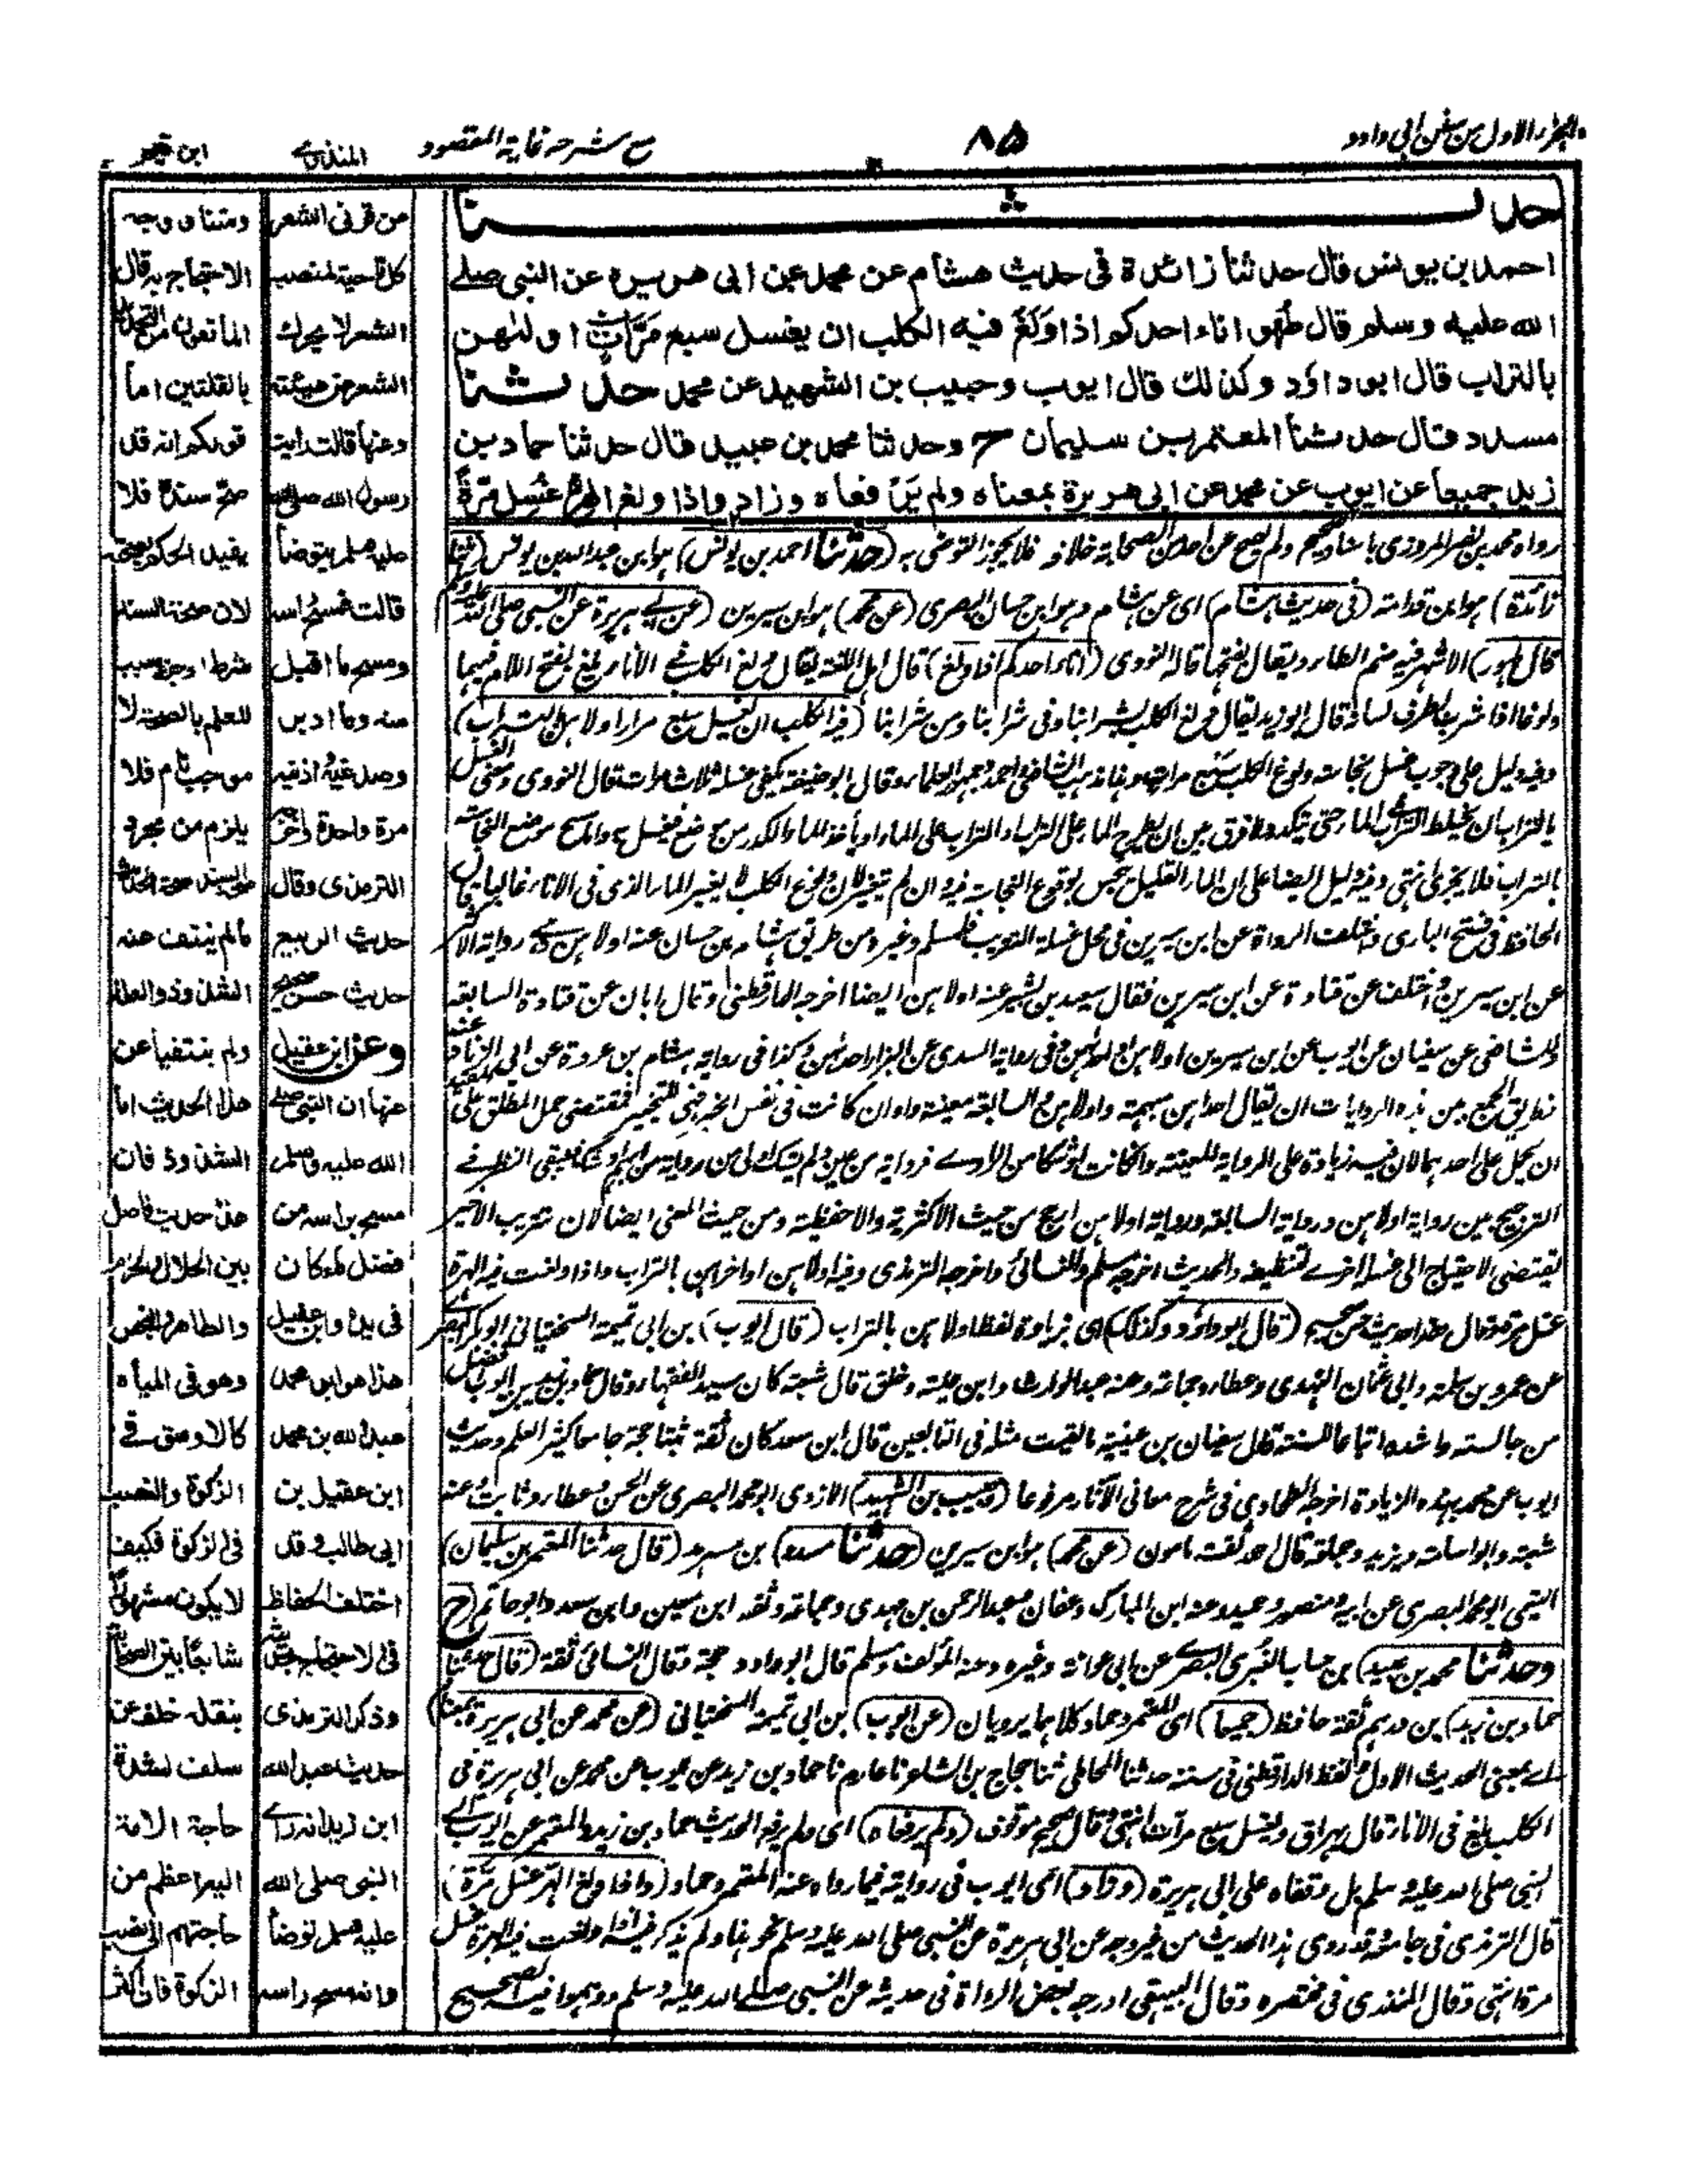 الجزء الاول من سنن ابي داود
٨٥
مع شرحه غاية المقصود
المنذري
ابن قيم
حدثنا
احمد بن يونس قال حدثنا زائدة في حديث هشام عن محمد عن ابي هريرة عن النبي صلى
الله عليه وسلم قال طُهور اناء احدكم اذا وَلَغَ فيه الكلب ان يغسل سبع مَرَّاتٍ اولٰهن
بالتراب قال ابو داؤد وكذلك قال ايوب وحبيب بن الشهيد عن محمد حدثنا
مسدد قال حدثنا المعتمر بن سليمان ح وحدثنا محمد بن عبيد قال حدثنا حماد بن
زيد جميعا عن ايوب عن محمد عن ابي هريرة بمعناه ولم يَرْفعاه وزاد واذا ولغ الهر غُسِل مَرّةً
رواه محمد بن نصر المروزي باسناد صحيح ولم يصح عن احد من الصحابة خلافه فلا يجوز التوضي به (حدثنا احمد بن يونس) هو ابن عبد الله بن يونس (ثنا
زائدة) هو ابن قدامة (في حديث هشام) اى عن هشام وهو ابن حسان البصري (عن محمد) هو ابن سيرين (عن ابي هريرة عن النبي صلى الله عليه وسلم
قال طهور) الاشهر فيه ضم الطاء ويقال بفتحها قاله النووي (اناء احدكم اذا ولغ) قال اهل اللغة يقال ولغ الكلب في الاناء يلغ بفتح اللام فيهما
ولوغا اذا شرب بطرف لسانه قال ابو زيد يقال ولغ الكلب بشرابنا وفي شرابنا ومن شرابنا (فيه الكلب ان يغسل سبع مرار اولاهن بالتراب)
وفيه دليل على وجوب غسل نجاسة ولوغ الكلب سبع مرات وهذا مذهب الشافعي واحمد وجمهور العلماء وقال ابو حنيفة يكفي غسله ثلاث مرات قال النووي ومعنى الغسل
بالتراب ان يخلط التراب في الماء حتى يتكدر ولا فرق بين ان يطرح الماء على التراب او التراب على الماء او يأخذ الماء الكدر من موضع فيغسل به واما مسح موضع النجاسة
بالتراب فلا يجزئ انتهى وفيه دليل ايضا على ان الماء القليل ينجس بوقوع النجاسة فيه وان لم يتغير لان ولوغ الكلب لا يغير الماء الذي في الاناء غالبا قال
الحافظ في فتح الباري واختلف الرواة عن ابن سيرين في محل غسلة التتريب فلمسلم وغيره من طريق هشام بن حسان عنه اولاهن وهي رواية الاكثر
عن ابن سيرين واختلف عن قتادة عن ابن سيرين فقال سعيد بن بشير عنه اولاهن ايضا اخرجه الدارقطني وقال ابان عن قتادة السابعة
وللشافعي عن سفيان عن ايوب عن ابن سيرين اولاهن او احداهن وفي رواية السدي عن البزار احداهن وكذا في رواية هشام بن عروة عن ابي الزناد عنه
فطريق الجمع بين هذه الروايات ان يقال احداهن مبهمة واولاهن والسابعة معينة واو ان كانت في نفس الخبر فهي للتخيير فمقتضى حمل المطلق على المقيد
ان يحمل على احدهما لان فيه زيادة على الرواية المعينة وان كانت او شكا من الراوي فرواية من عين ولم يشك اولى من رواية من ابهم او شك فيبقى النظر في
الترجيح بين رواية اولاهن ورواية السابعة ورواية اولاهن ارجح من حيث الاكثرية والاحفظية ومن حيث المعنى ايضا لان تتريب الاخير
يقتضى الاحتياج الى غسلة اخرى لتنظيفه والحديث اخرجه مسلم والنسائي واخرجه الترمذي وفيه اولاهن او اخراهن بالتراب واذا ولغت فيه الهرة
غسل مرة وقال هذا حديث حسن صحيح (قال ابو داؤد وكذلك) اى بزيادة لفظ اولاهن بالتراب (قال ايوب) بن ابي تميمة السختياني ابو بكر البصري
عن عمرو بن سلمة وابي عثمان النهدي وعطاء وجماعة وعنه عبد الوارث وابن علية وخلق قال شعبة كان سيد الفقهاء وقال حماد بن زيد ايوب افضل
من جالسته واشده اتباعا للسنة وقال سفيان بن عيينة ما لقيت مثله في التابعين قال ابن سعد كان ثقة ثبتا حجة جامعا كثير العلم وحديث
ايوب عن محمد بهذه الزيادة اخرجه الطحاوي في شرح معاني الآثار مرفوعا (وحبيب بن الشهيد) الازدي ابو محمد البصري عن الحسن وعطاء وثابت وعنه
شعبة وابو اسامة ويزيد وجماعة قال احمد ثقة مامون (عن محمد) هو ابن سيرين (حدثنا مسدد) بن مسرهد (قال حدثنا المعتمر بن سليمان)
التيمي ابو محمد البصري عن ابيه ومنصور وحميد وعنه ابن المبارك وعفان وعبد الرحمن بن مهدي وجماعة وثقه ابن معين وابن سعد وابو حاتم (ح
وحدثنا محمد بن عبيد) بن حساب الغبري البصري عن ابي عوانة وغيره وعنه المؤلف ومسلم قال ابو داود حجة وقال النسائي ثقة (قال حدثنا
حماد بن زيد) بن درهم ثقة حافظ (جميعا) اى المعتمر وحماد كلاهما يرويان (عن ايوب) بن ابي تميمة السختياني (عن محمد عن ابي هريرة بمعناه)
اے بمعنى الحديث الاول ولفظ الدارقطني في سننه حدثنا المحاملي ثنا حجاج بن الشاعر نا عارم نا حماد بن زيد عن ايوب عن محمد عن ابي هريرة في
الكلب يلغ في الاناء قال يهراق ويغسل سبع مرات انتهى وقال صحيح موقوف (ولم يرفعاه) اى ولم يرفع الحديث حماد بن زيد والمعتمر عن ايوب الى
النبي صلى الله عليه وسلم بل وقفاه على ابي هريرة (وزاد) اى ايوب في روايته فيما رواه عنه المعتمر وحماد (واذا ولغ الهر غسل مرة)
قال الترمذي في جامعه وقد روي هذا الحديث من غير وجه عن ابي هريرة عن النبي صلى الله عليه وسلم نحو هذا ولم يذكر فيه اذا ولغت فيه الهرة غسل
مرة انتهى وقال المنذري في مختصره وقال البيهقي ادرجه بعض الرواة في حديثه عن النبي صلى الله عليه وسلم ووهموا فيه الصحيح
من قرنى الشعر
كل ناحية لمنصب
الشعر لا يحرك
الشعر عن هيئته
وعنها قالت رايت
رسول الله صلى الله
عليه وسلم يتوضأ
قالت فمسح راسه
ومسح ما اقبل
منه وما ادبر
وصدغيه واذنيه
مرة واحدة واخرجه
الترمذي وقال
حديث الربيع
حديث حسن صحيح
وعن ابن عقيل
عنها ان النبي صلى
الله عليه وسلم
مسح براسه من
فضل ماء كان
في يده وابن عقيل
هذا هو ابو محمد
عبد الله بن محمد
ابن عقيل بن
ابي طالب وقد
اختلف الحفاظ
في الاحتجاج بحديثه
وذكر الترمذي
حديث عبد الله
ابن زيد انه راى
النبي صلى الله
عليه وسلم توضأ
وانه مسح راسه
ومتنا ووجه
الاحتجاج به قال
المانعون من التحديد
بالقلتين اما
قولكم انه قد
صح سنده فلا
يفيد الحكم بصحته
لان صحة السند
شرط او جزء سبب
للعلم بالصحة لا
موجب تام فلا
يلزم من مجرد
صحة السند صحة الحديث
مالم ينتف عنه
الشذوذ والعلة
ولم ينتفيا عن
هذا الحديث اما
الشذوذ فان
هذا حديث فاصل
بين الحلال والحرام
والطاهر والنجس
وهو في المياه
كالاوسق في
الزكوة والنصب
في الزكوة فكيف
لا يكون مشهورا
شائعا بين الصحابة
ينقله خلف عن
سلف لشدة
حاجة الامة
اليه اعظم من
حاجتهم الى نصب
الزكوة فان اكثر